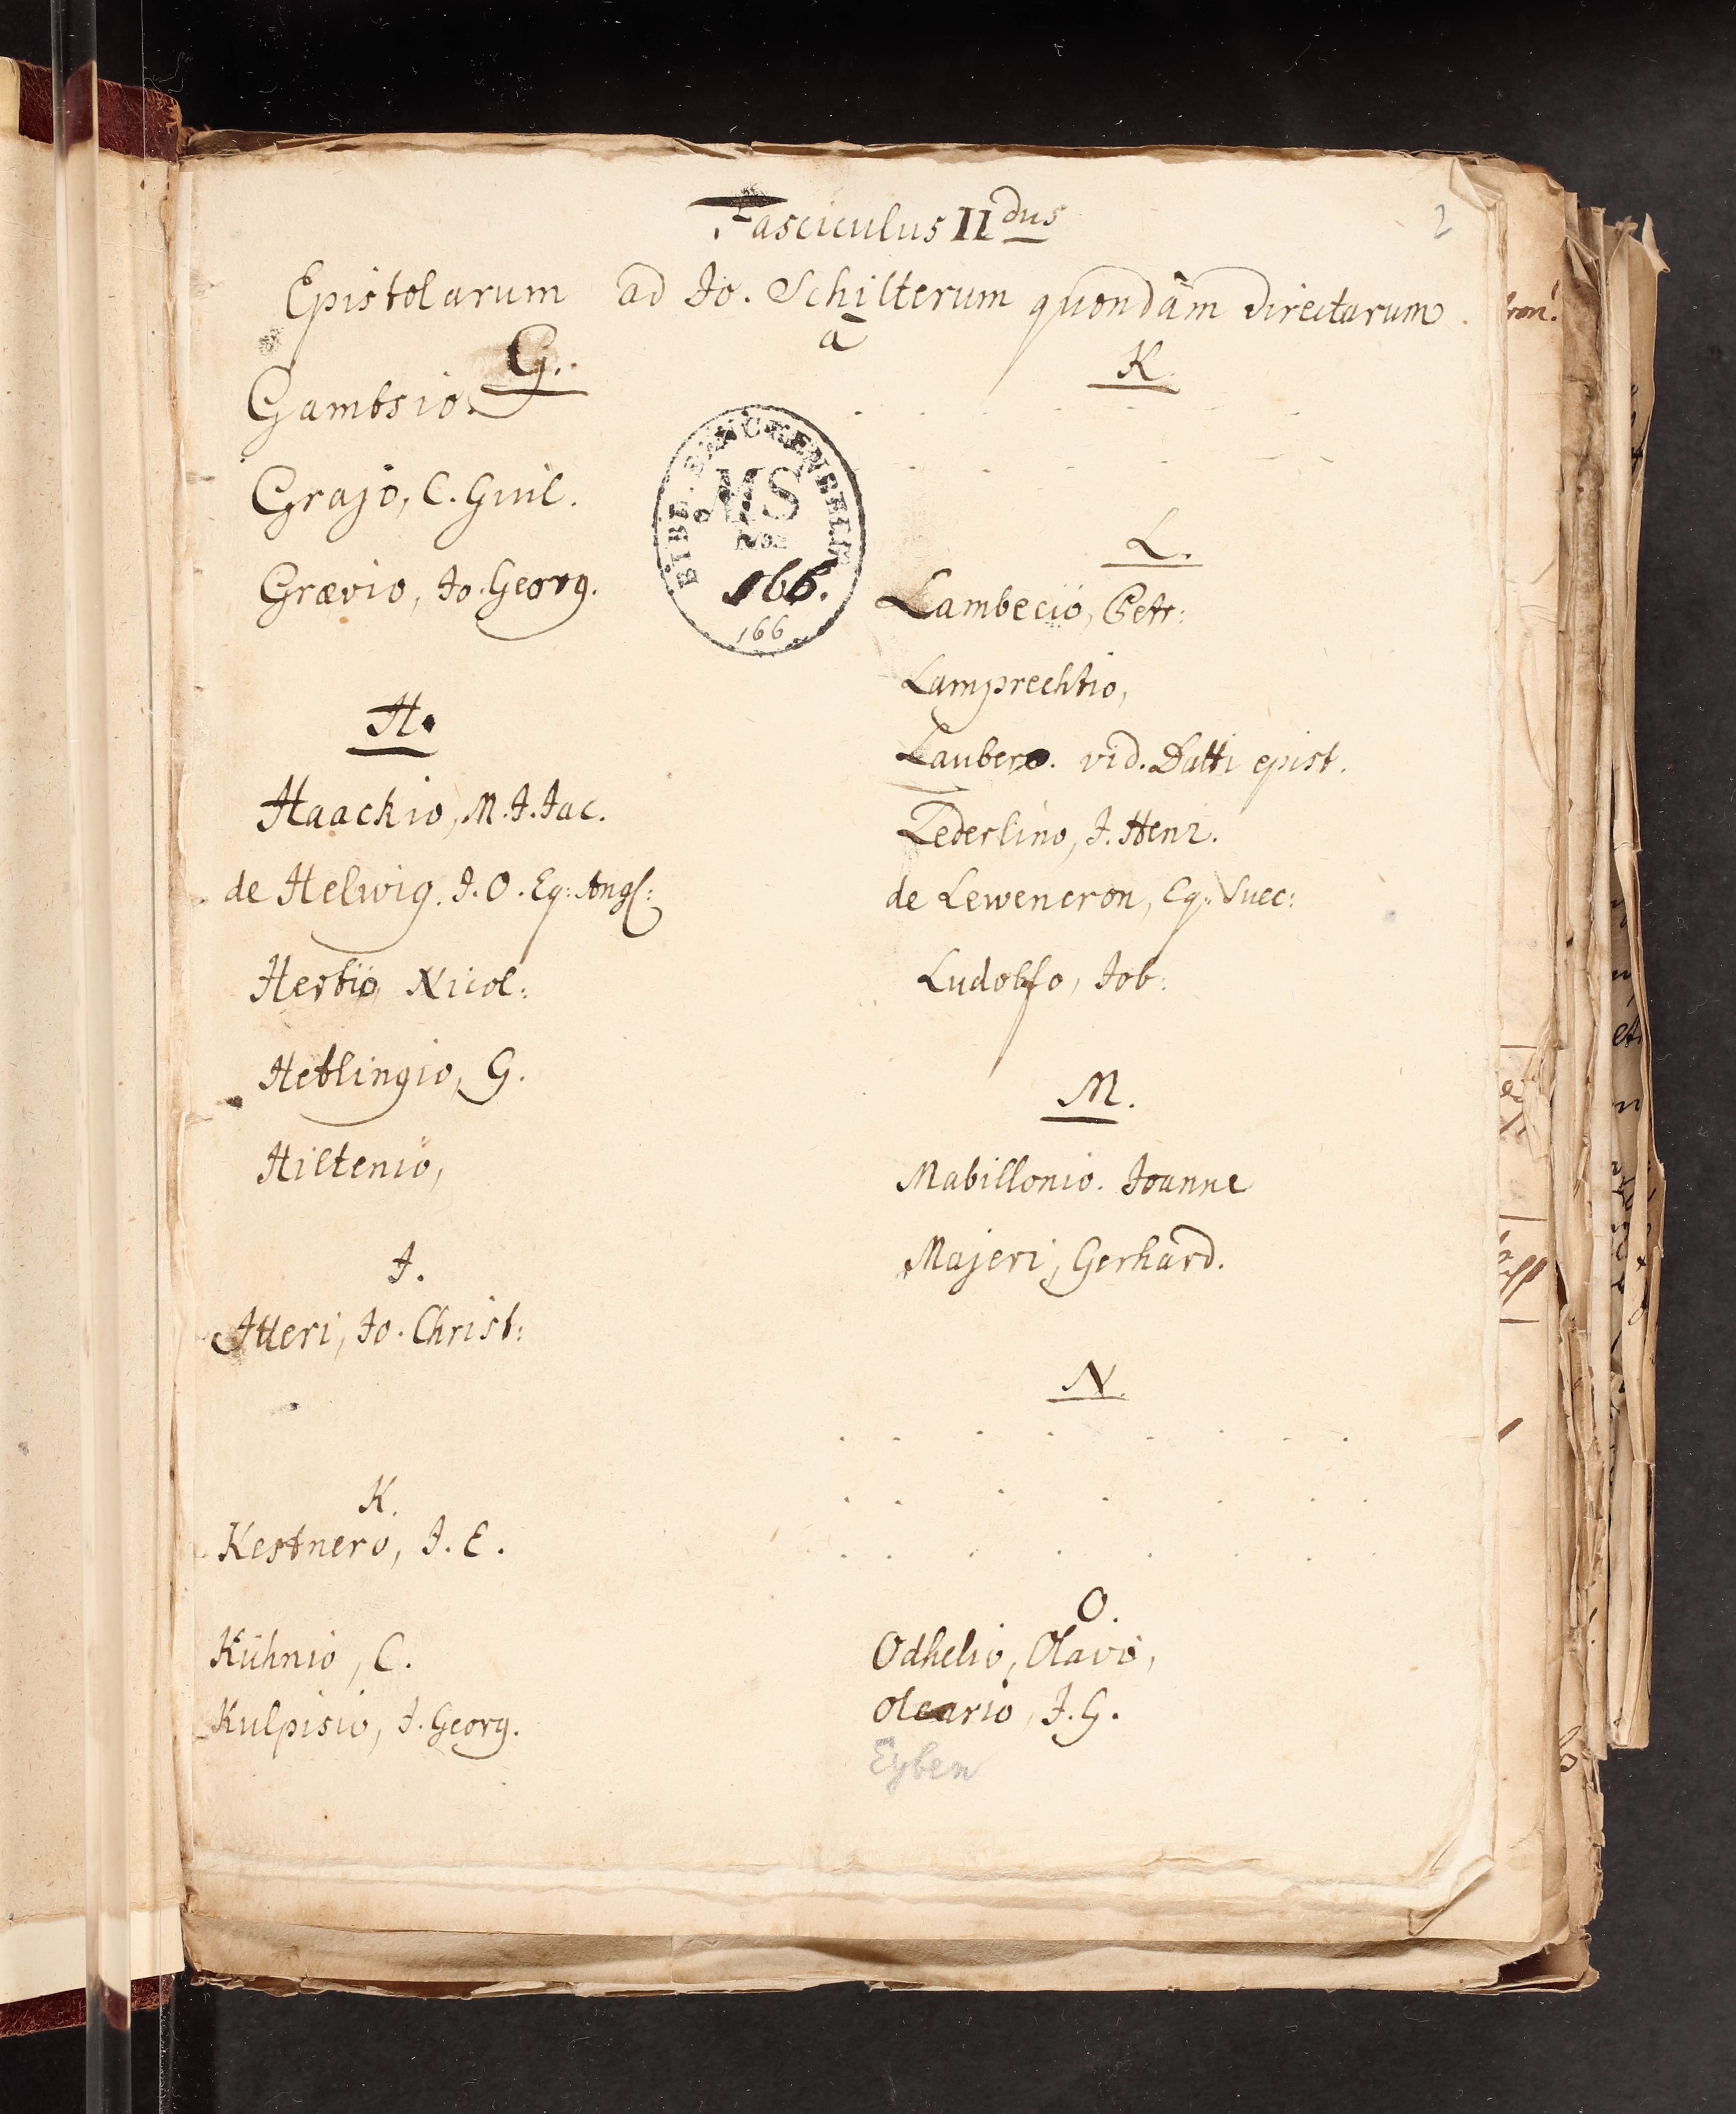 2
Fasciculus II dus
Epistolarum ad Jo. Schilterum quondam directarum
à
G.
Gambsio
Grajo, C. Guil.
Grævio, Jo. Georg.
BIBL. SENCKENBERG
MS
No.
166.
166
H.
Haackio, M. J. Jac.
de Helwig. J. O. Eq: Angl:
Hertio, Nicol:
Heblingio, G.
Hiltenio,
J.
Itteri, Jo. Christ:
K.
Kestnero, J. E.
Kühnio, C.
Kulpisio, J. Georg.
K.
L.
Lambecio, Petr:
Lamprechtio,
Laubero. vid. Datti epist.
Lederlino, J. Henr.
de Leweneron, Eq: Suec:
Ludolfo, Job:
M.
Mabillonio. Joanne
Majeri, Gerhard.
N.
O.
Odhelio, Olavo,
Oleario, J. G.
Eyben